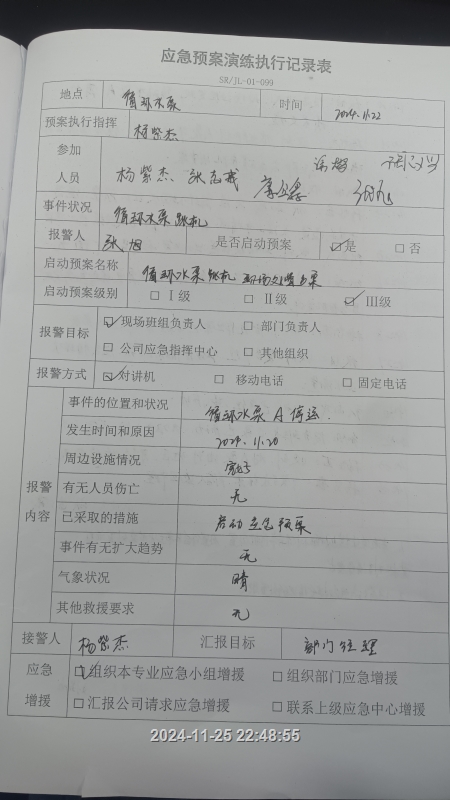 应急预案演练执行记录表
SR/JL-01-099
地点 循环水泵 时间 2024.11.22
预案执行指挥 杨紫杰
参加
人员 杨紫杰、张志成
事件状况 循环水泵跳机
报警人 张旭 是否启动预案 ☑是 □否
启动预案名称 循环水泵跳机现场处置方案
启动预案级别 □Ⅰ级 □Ⅱ级 ☑Ⅲ级
报警目标 ☑现场班组负责人 □部门负责人
□公司应急指挥中心 □其他组织
报警方式 ☑对讲机 □移动电话 □固定电话
报警
内容
事件的位置和状况 循环水泵A停运.
发生时间和原因 2024.11.20
周边设施情况 完好
有无人员伤亡 无
已采取的措施 启动应急预案
事件有无扩大趋势 无
气象状况 晴
其他救援要求 无
接警人 杨紫杰 汇报目标 部门经理
应急
增援
☑组织本专业应急小组增援 □组织部门应急增援
□汇报公司请求应急增援 □联系上级应急中心增援
2024-11-25 22:48:55